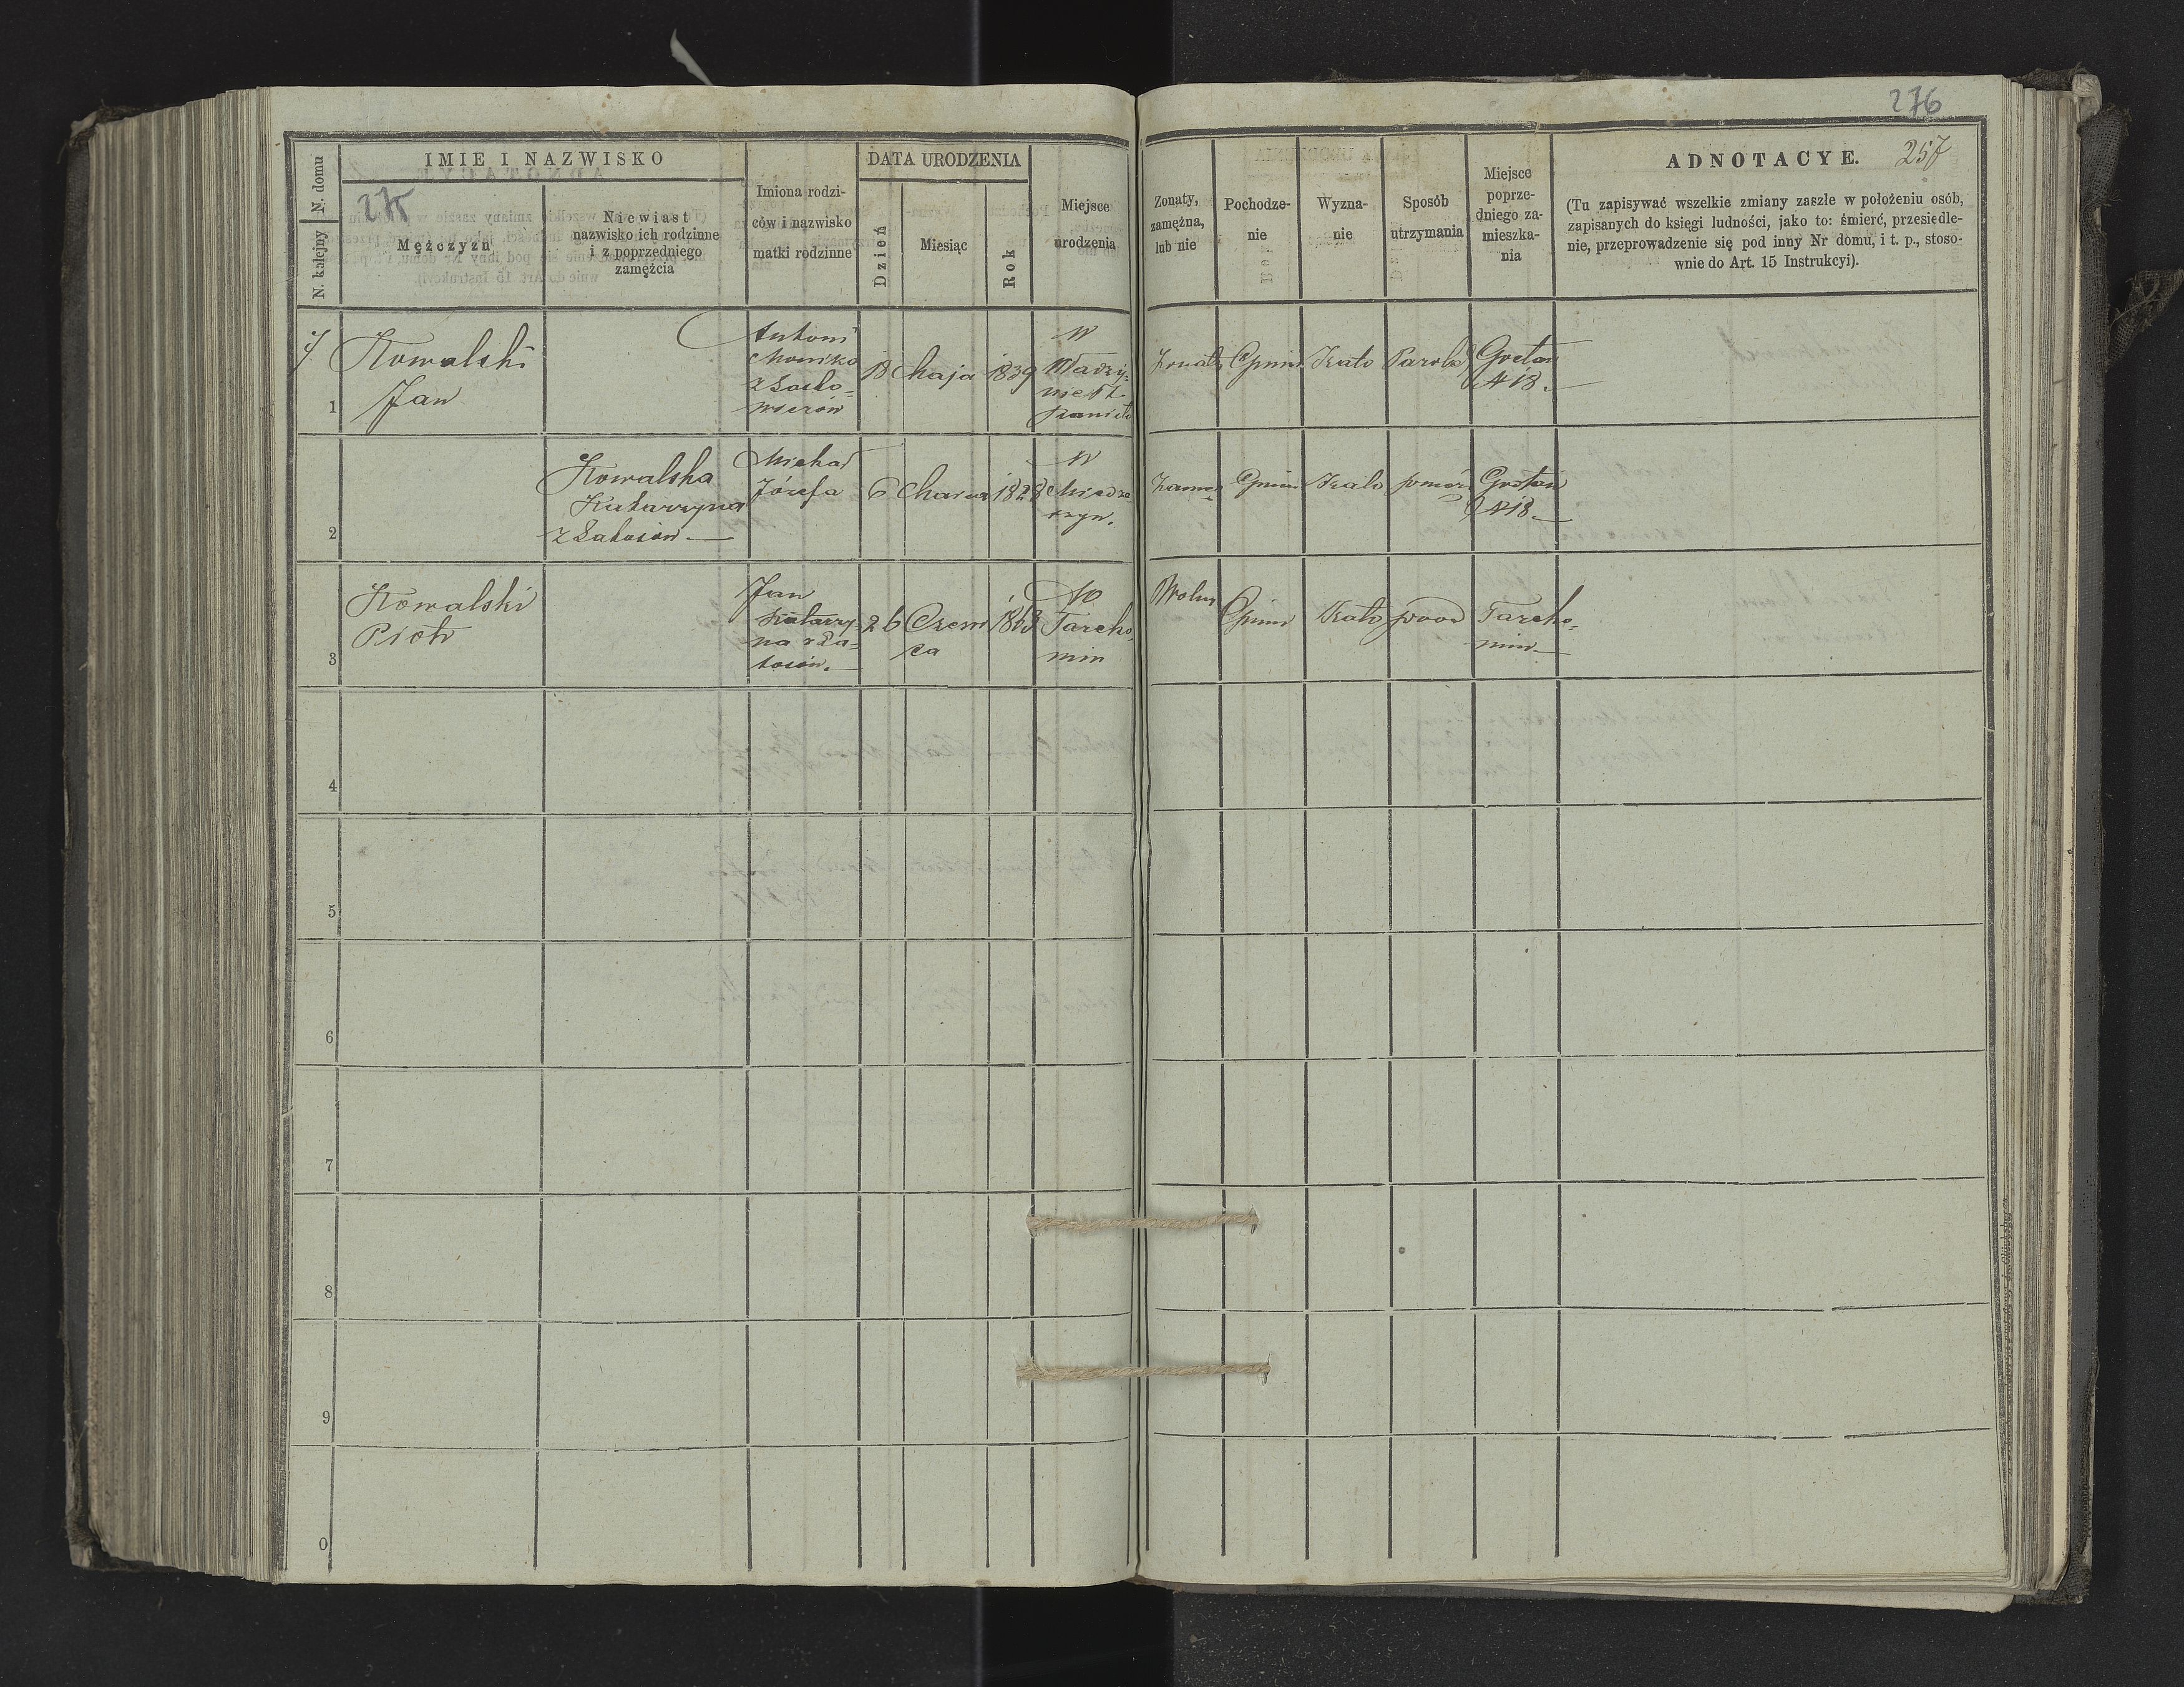 276
257
275
N. kolejny
N. domu
IMIE I NAZWISKO
Mężczyzn
Niewiast
nazwisko ich rodzinne
i z poprzedniego
zamężcia
Imiona rodzi-
ców i nazwisko
matki rodzinne
DATA URODZENIA
Dzień
Miesiąc
Rok
Miejsce
urodzenia
Zonaty,
zamężna,
lub nie
Pochodze-
nie
Wyzna-
nie
Sposób
utrzymania
Miejsce
poprze-
dniego za-
mieszka-
nia
ADNOTACYE.
(Tu zapisywać wszelkie zmiany zaszłe w położeniu osób,
zapisanych do księgi ludności, jako to: śmierć, przesiedle-
nie, przeprowadzenie się pod inny Nr domu, i t. p., stoso-
wnie do Art. 15 Instrukcyi).
1
Kowalski
Jan
Antoni
Monika
18
Maja
1839
W
Zonaty
Gmin
Kato
Parob
№ 18.
2
Kowalska
Katarzyna
Michał
Józefa
6
1828
W
Zamę
Gmin
Kato
№ 18
3
Kowalski
Piotr
Jan
Katarzy-
na z Ła-
26
Czerw
ca
1863
W
Tarcho-
min
Wolny
Gmin
Kato
Tarcho-
min
4
5
6
7
8
9
0